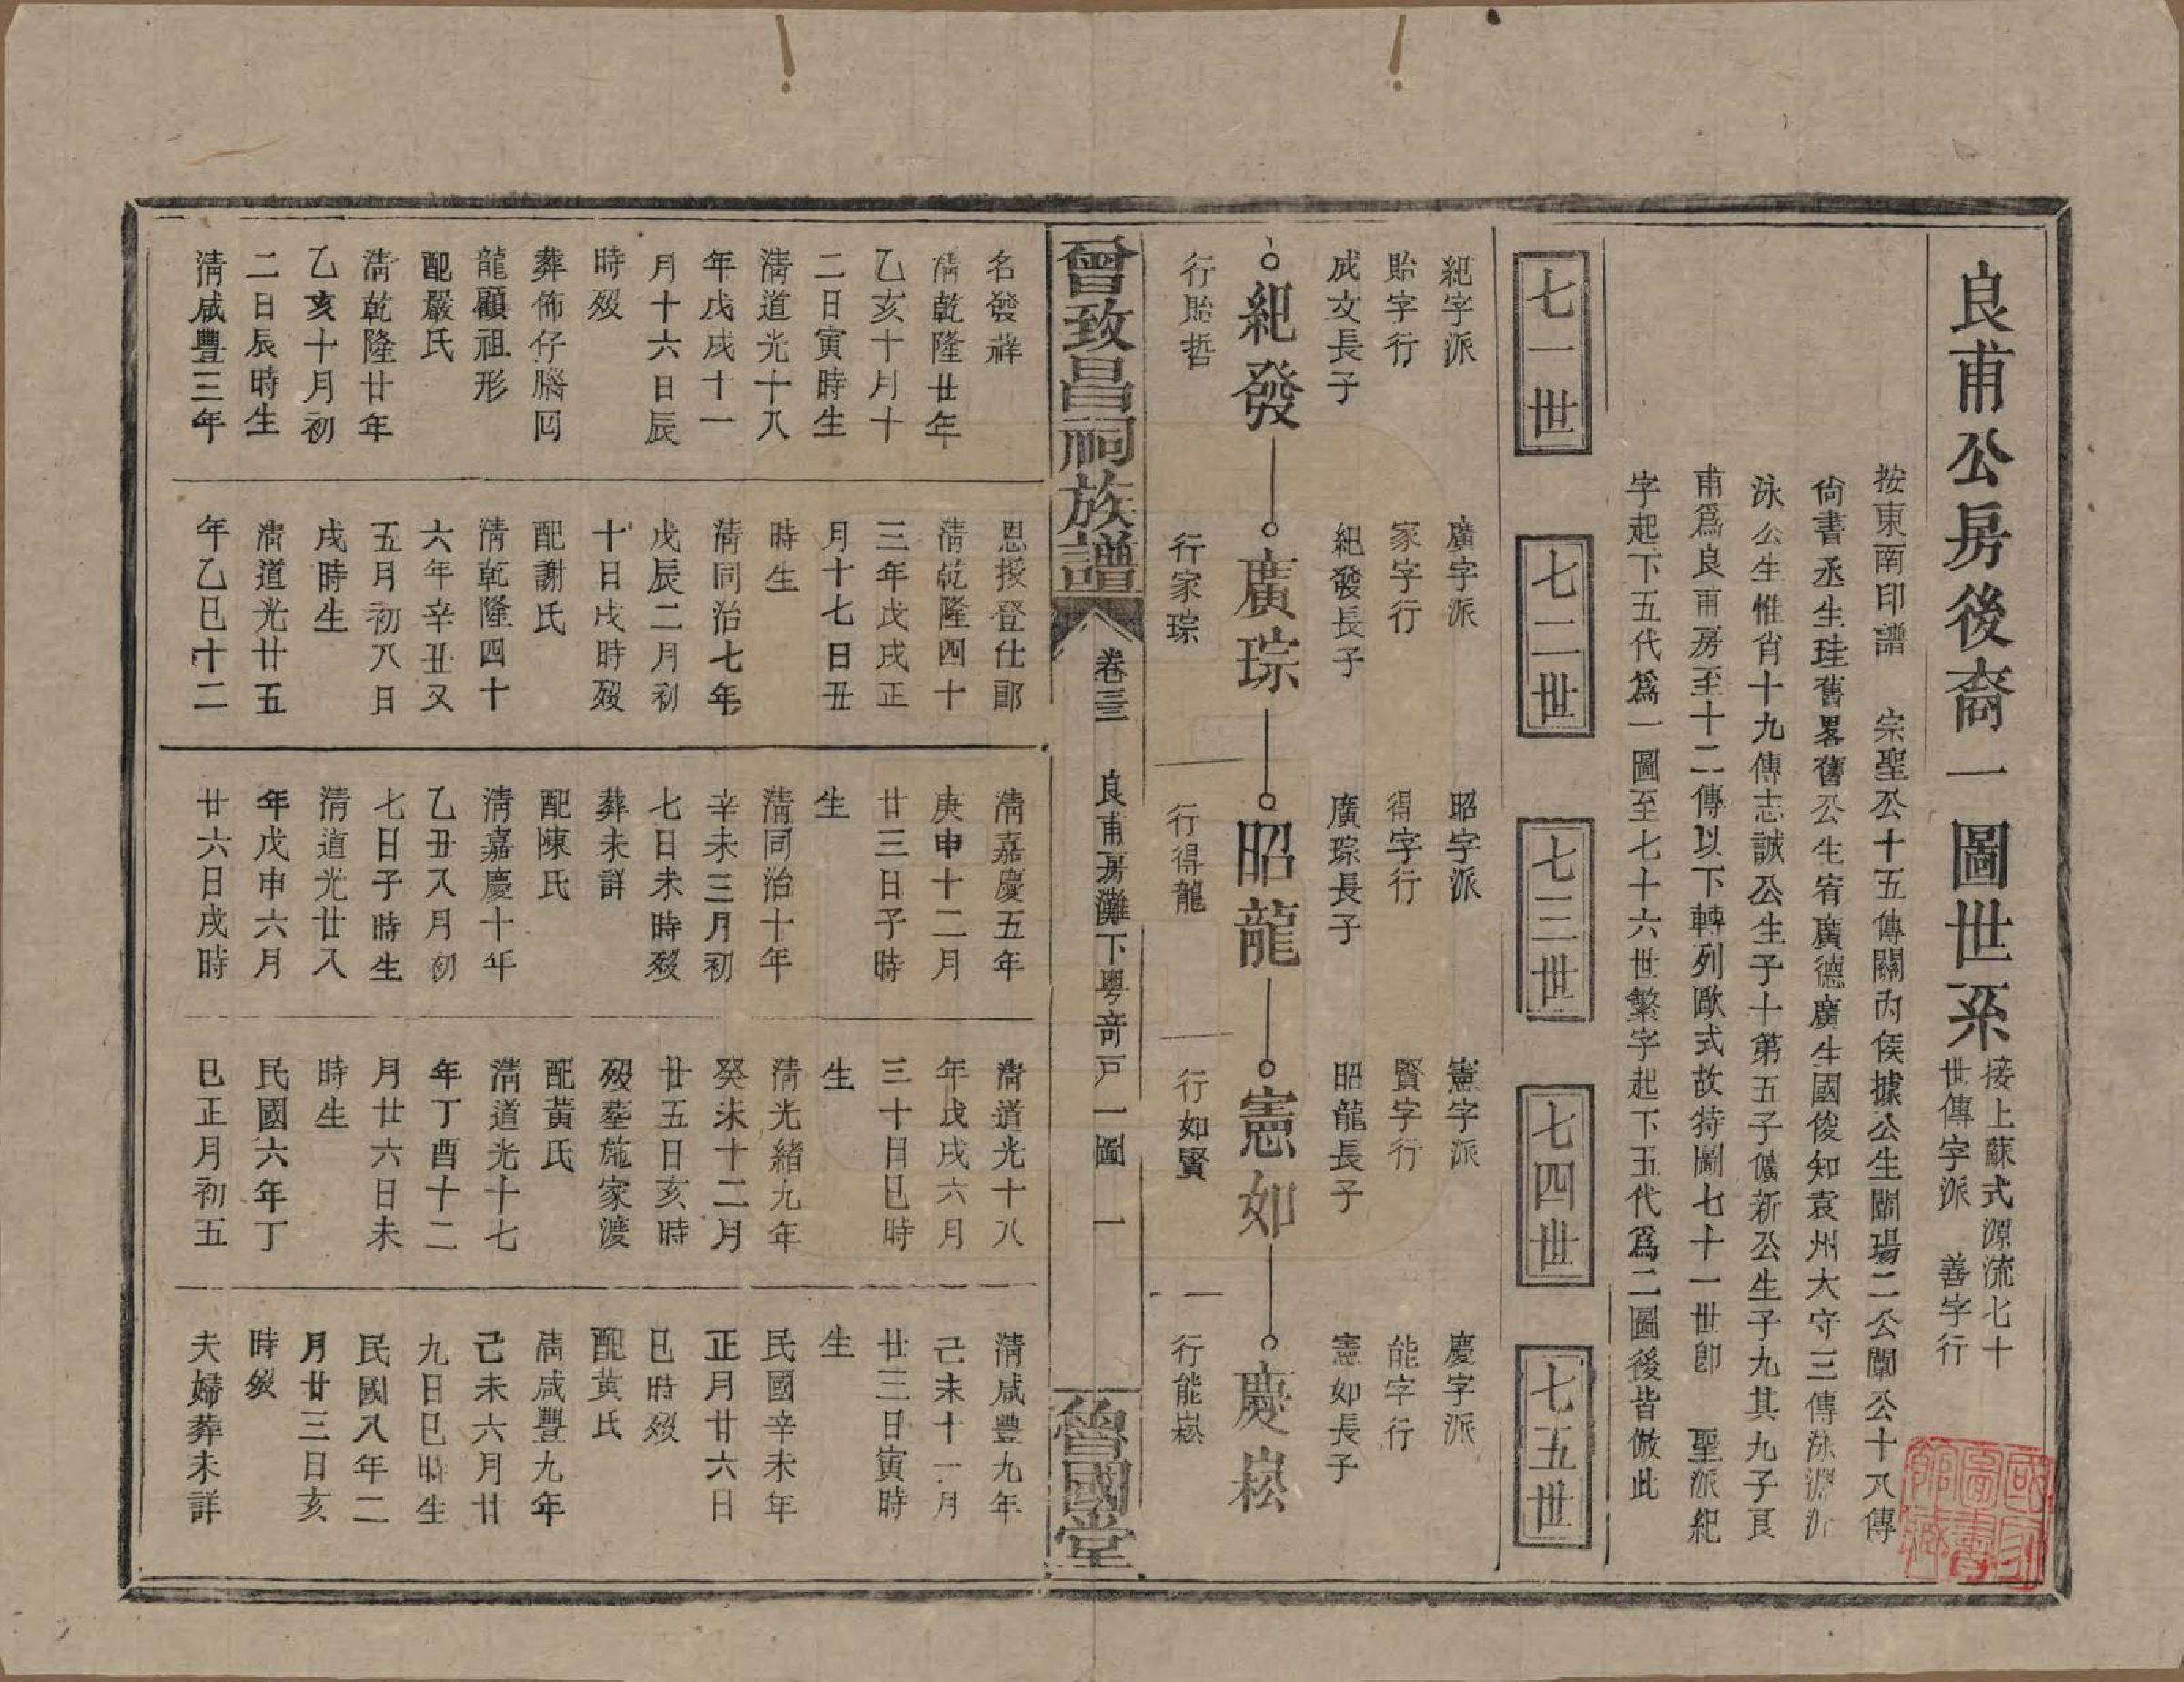 良甫公房後裔一圖世系
接上蘇式源流七十
世傳字派　善字行
按東南印譜　宗聖公十五傳關內侯據公生闡瑒二公闡公十八傳
尙書丞生珪舊畧舊公生宥廣德廣生國俊知袁州大守三傳泳淵
泳公生惟肖十九傳志誠公生子十第五子儀新公生子九其九子頁
甫爲良甫房至十二傳以下轉列歐式故特圖七十一世卽　聖派紀
字起下五代爲一圖至七十六世繁字起下五代爲二圖後皆倣此
七一世
七二世
七三世
七四世
七五世
紀字派
貽字行
成文長子
紀發
行貽哲
廣字派
家字行
紀發長子
廣琮
行家琮
昭字派
得字行
廣琮長子
昭龍
行得龍
憲字派
賢字行
昭龍長子
憲如
行如賢
慶字派
能字行
憲如長子
慶崧
行能崧
曾致昌祠族譜
卷三三
良甫房灘下粤竒戸一圖
一
魯國堂
名發祥
淸乾隆廿年
乙亥十月十
二日寅時生
淸道光十八
年戊戌十一
月十六日辰
時歿
葬佈仔勝回
龍顧祖形
配嚴氏
淸乾隆廿年
乙亥十月初
二日辰時生
淸咸豐三年
恩授登仕郎
淸乾隆四十
三年戊戌正
月十七日丑
時生
淸同治七年
戊辰二月初
十日戌時歿
配謝氏
淸乾隆四十
六年辛丑又
五月初八日
戌時生
淸道光廿五
年乙巳十二
淸嘉慶五年
庚申十二月
廿三日子時
生
淸同治十年
辛未三月初
七日未時歿
葬未詳
配陳氏
淸嘉慶十年
乙丑八月初
七日子時生
淸道光廿八
年戊申六月
廿六日戌時
淸道光十八
年戊戌六月
三十日巳時
生
淸光緖九年
癸未十二月
廿五日亥時
歿塟施家渡
配黃氏
淸道光十七
年丁酉十二
月廿六日未
時生
民國六年丁
巳正月初五
淸咸豐九年
己未十一月
廿三日寅時
生
民國辛未年
正月廿六日
巳時歿
配黃氏
淸咸豐九年
己未六月廿
九日巳時生
民國八年二
月廿三日亥
時歿
夫婦葬未詳
國家圖書館藏